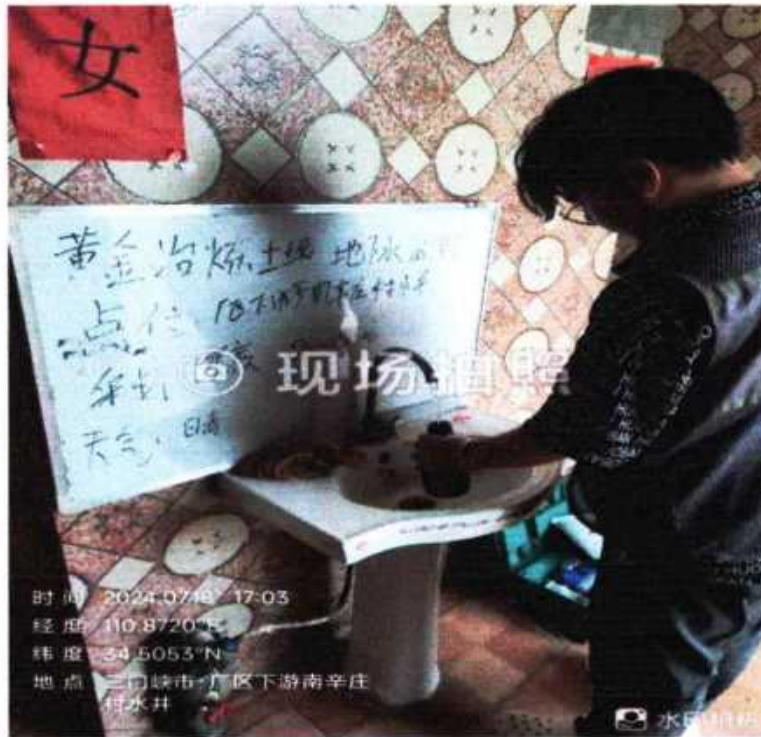 女
黄金冶炼土壤 地下水
点位
采样
天气：晴
现场拍照
时间 2024.07.18 17:03
经度 110.8720°E
纬度 34.5053°N
地点 三门峡市·厂区下游南辛庄
村水井
水印相机